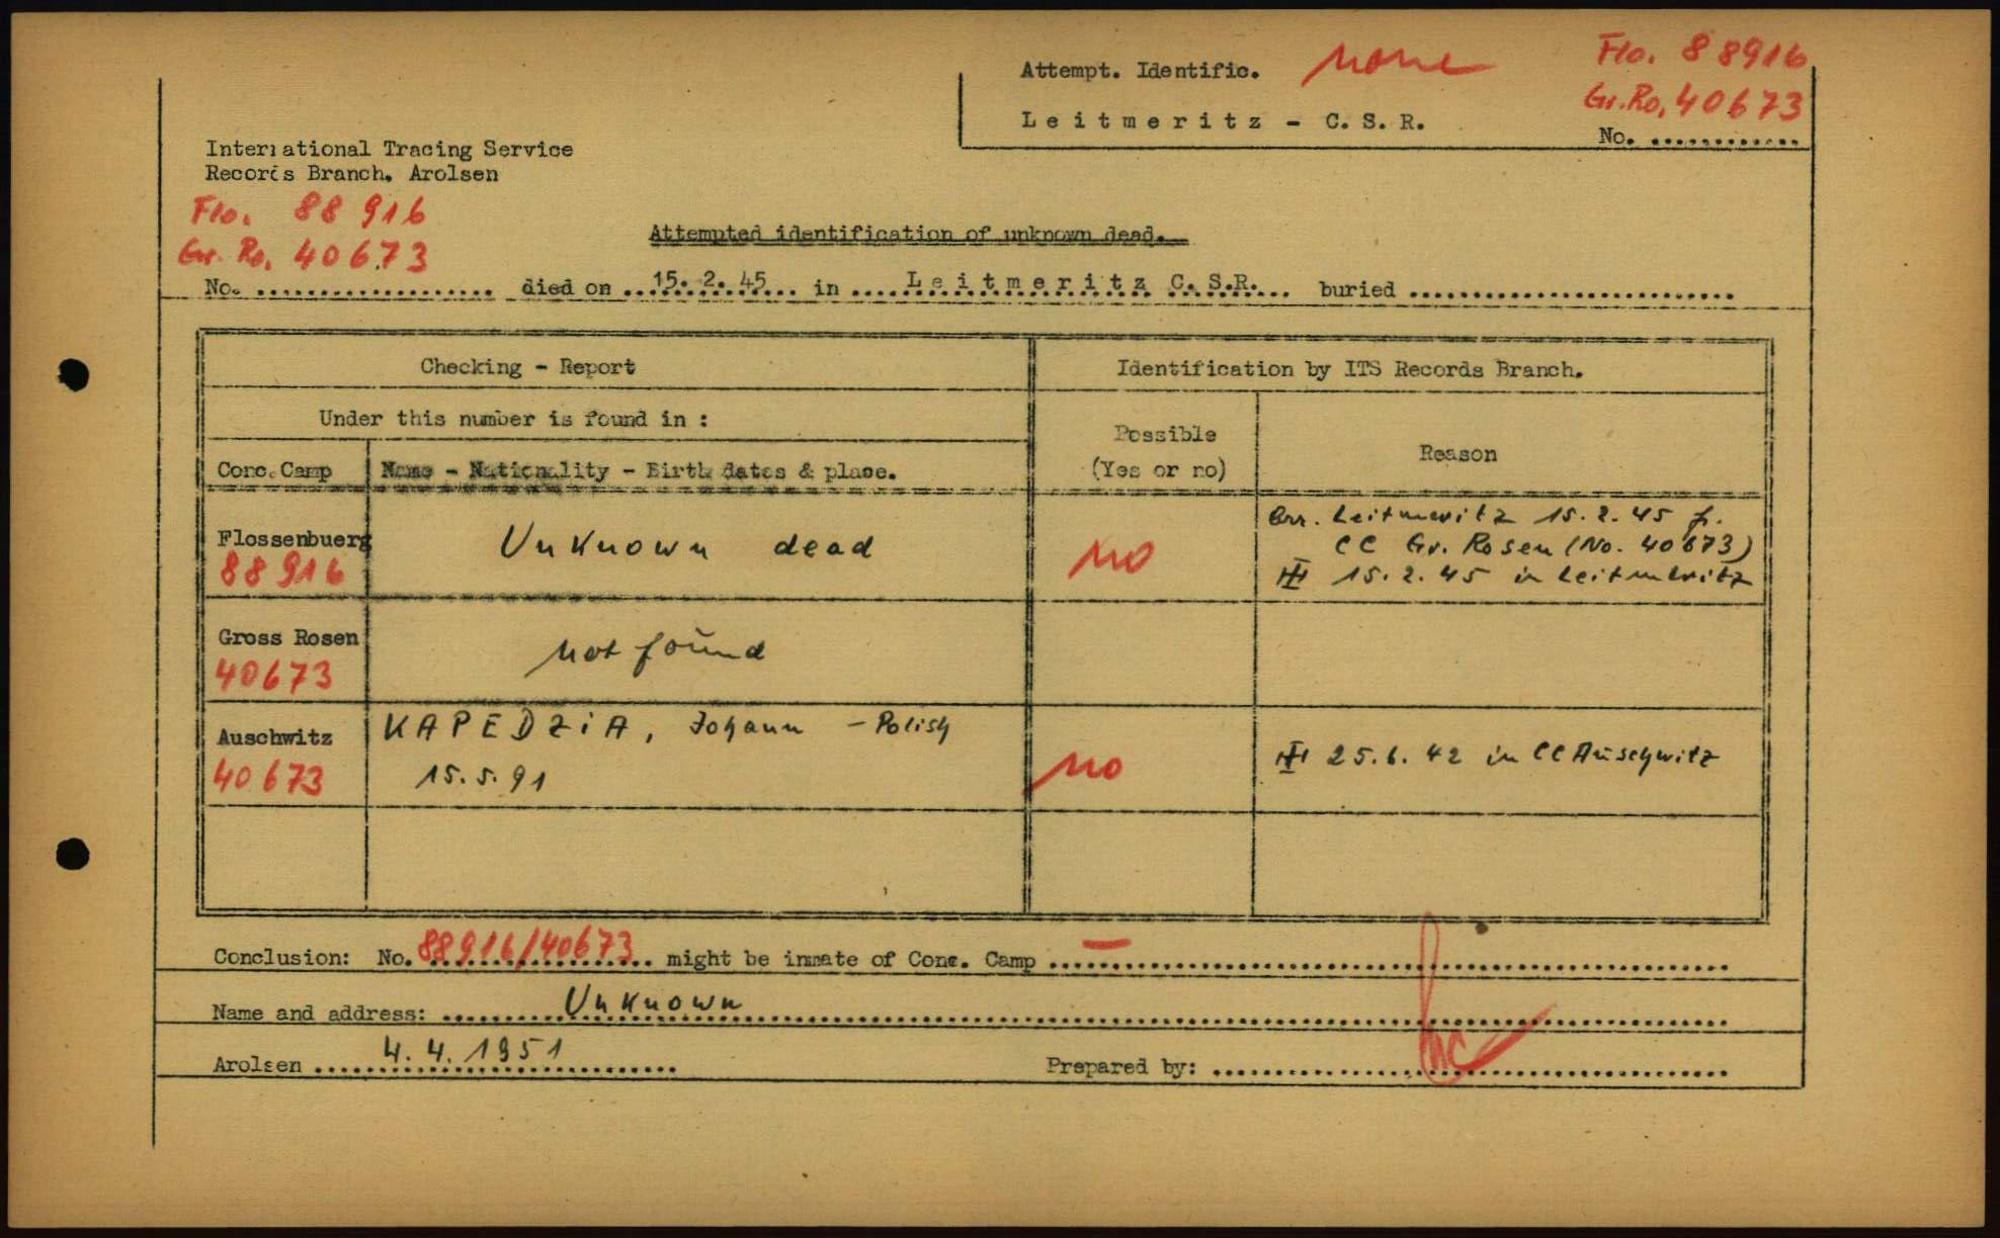 Attempt. Identific. none Flo. 88916
Gr.Ro. 40673
Leitmeritz - C.S.R. No. ............
International Tracing Service
Records Branch, Arolsen
Flo. 88916
Gr. Ro. 40673
Attempted identification of unknown dead.
No. .................... died on ...15. 2. 45... in ....Leitmeritz C.S.R.... buried ............................
Checking - Report Identification by ITS Records Branch.
Under this number is found in :
Possible
(Yes or no) Reason
Conc.Camp Name - Nationality - Birth dates & place.
Flossenbuerg Unknown dead no Arr. Leitmeritz 15.2.45 f.
88916 CC Gr. Rosen (No. 40673)
15.2.45 in Leitmeritz
Gross Rosen not found
40673
Auschwitz KAPEDZiA, Johann - Polish no 25.6.42 in CC Auschwitz
40673 15.5.91
Conclusion: No. 88916/40673 might be inmate of Conc. Camp — ............................
Name and address: Unknown ............................
Arolsen 4.4.1951 Prepared by: ............................